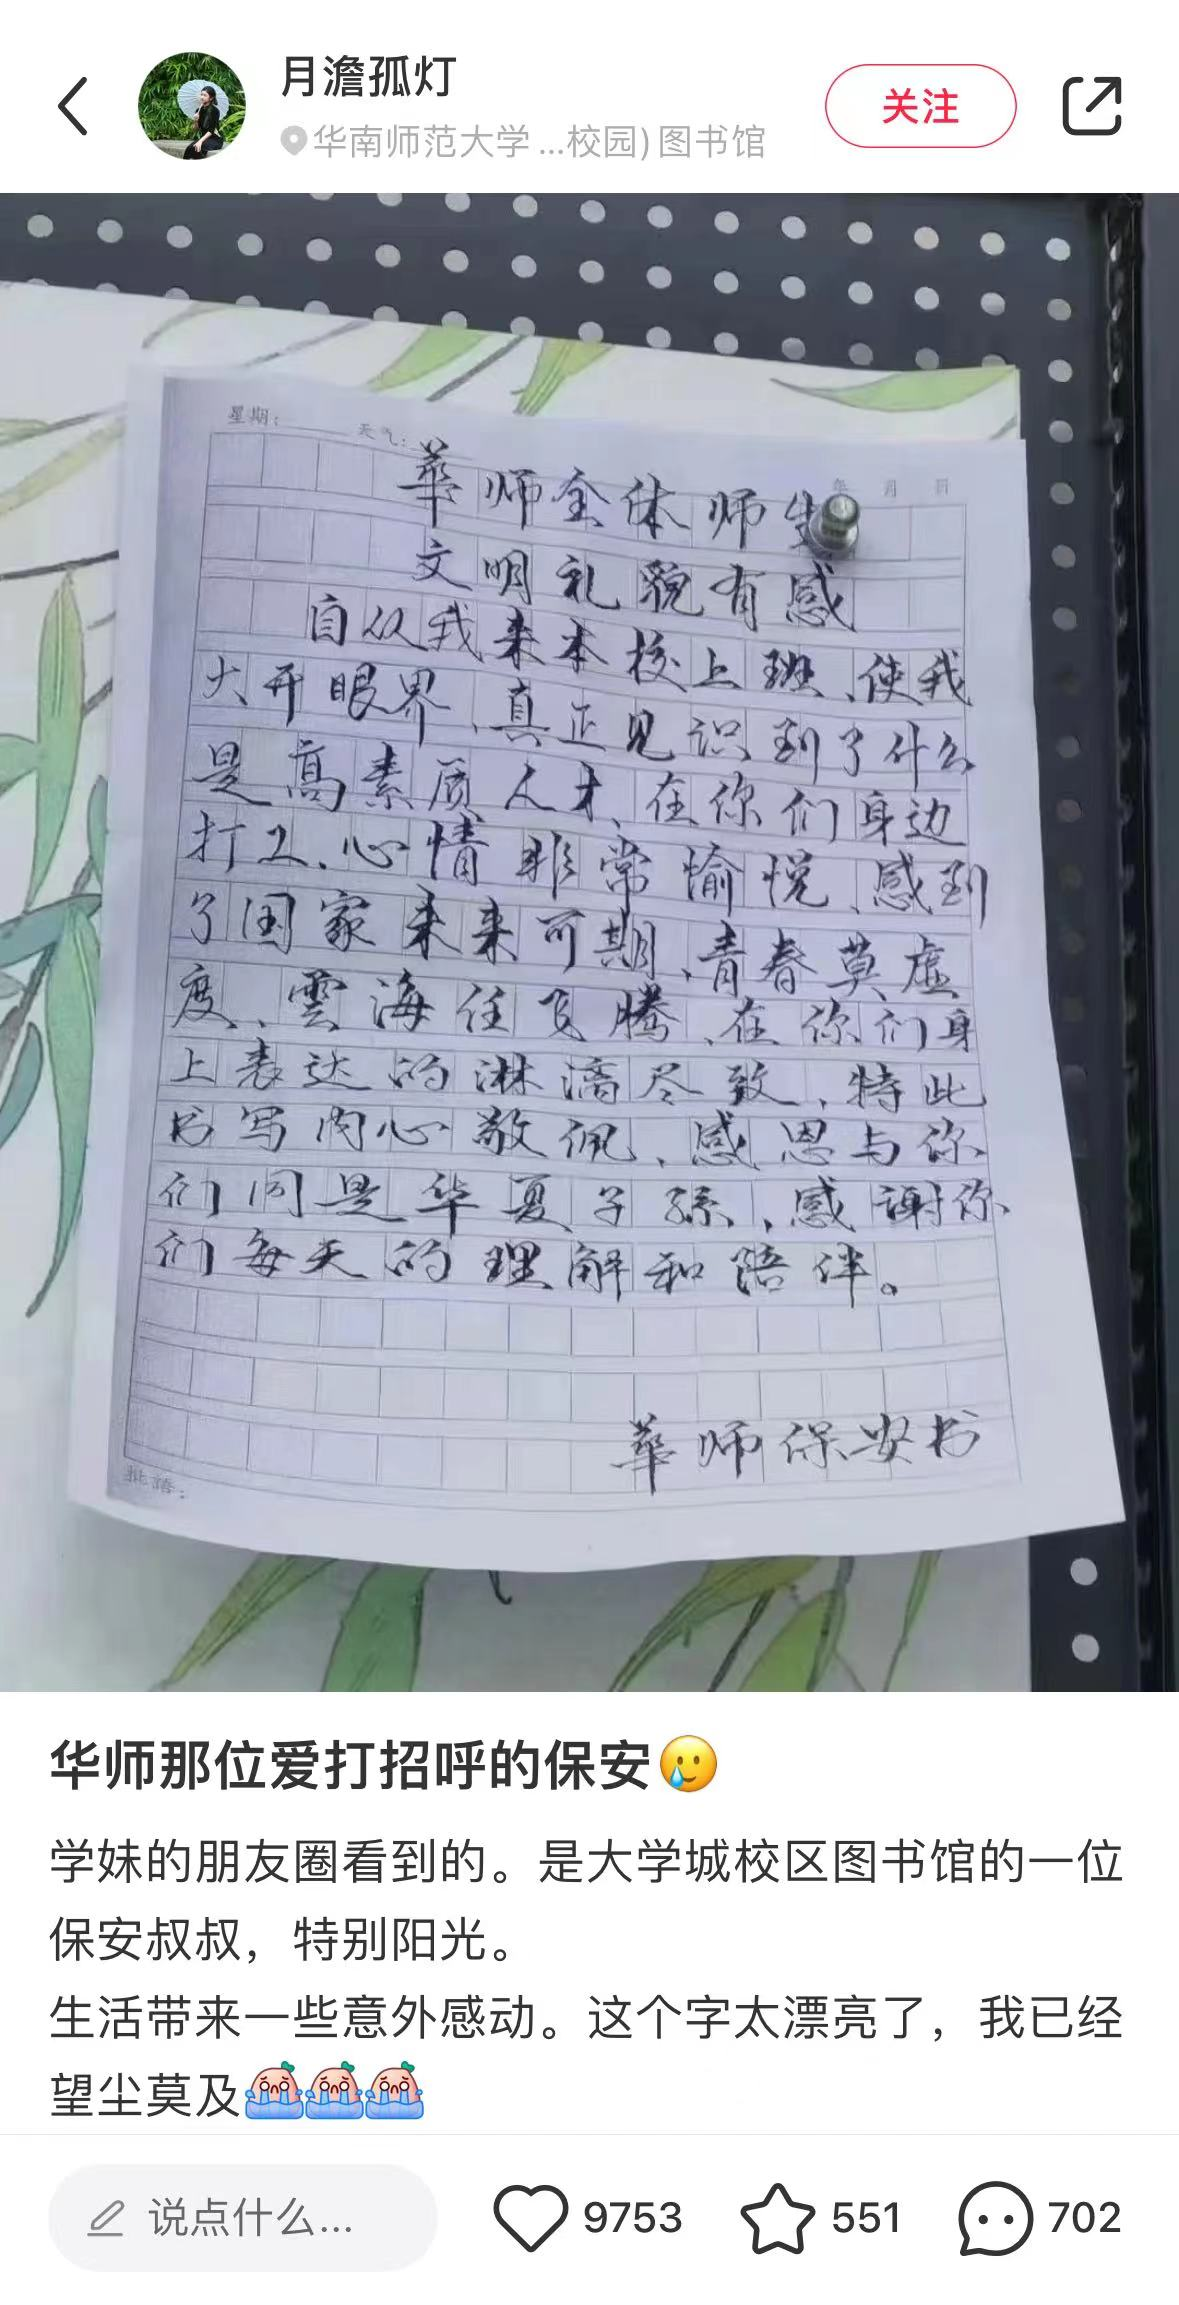 月澹孤灯
华南师范大学...校园)图书馆
关注
星期：
天气：
年 月 日
華师全体师生
文明礼貌有感
自从我来本校上班、使我
大开眼界、真正见识到了什么
是高素质人才、在你们身边
打工、心情非常愉悦、感到
了国家未来可期、青春莫虚
度、雲海任飞腾、在你们身
上表达的淋漓尽致、特此
书写内心敬佩、感恩与你
们同是华夏子孫、感谢你
们每天的理解和陪伴。
華师保安书
华师那位爱打招呼的保安🥲
学妹的朋友圈看到的。是大学城校区图书馆的一位
保安叔叔，特别阳光。
生活带来一些意外感动。这个字太漂亮了，我已经
望尘莫及
说点什么...
9753
551
702